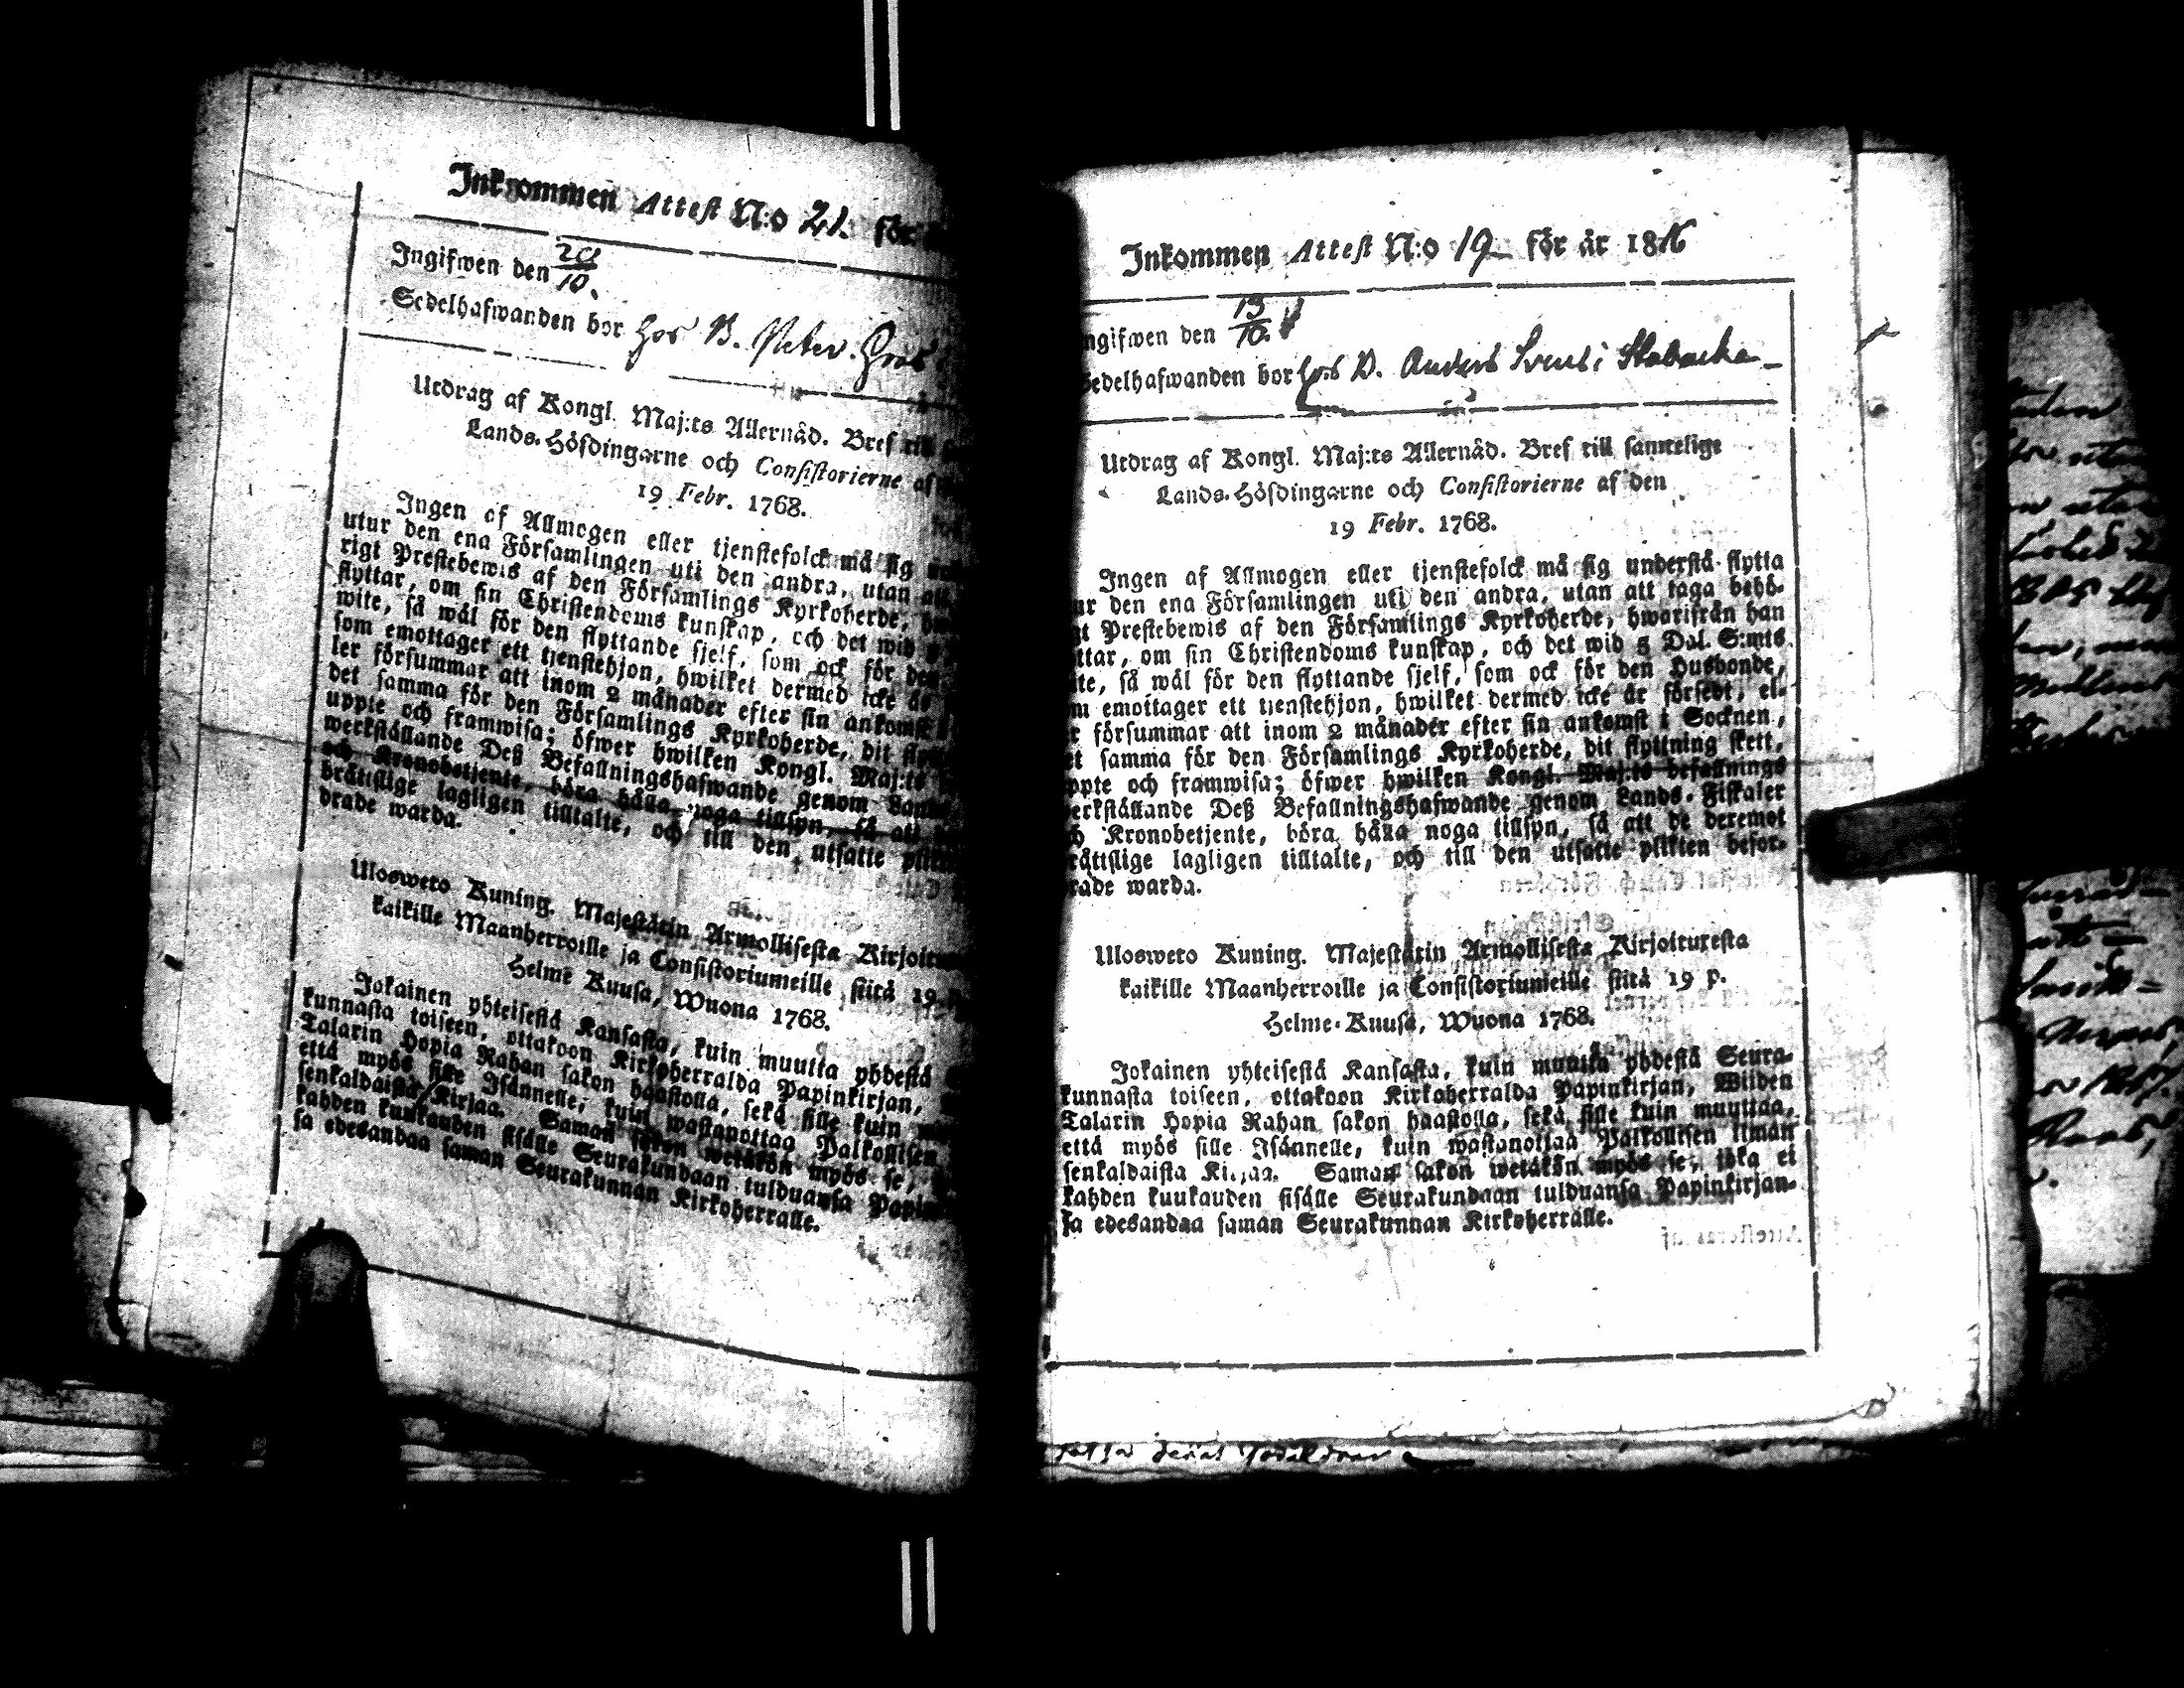 Inkommen Attest N:o 21. för
Ingifwen den 20/10.
Sedelhafwanden bor hos B. Peter
Utdrag af Kongl. Maj:ts Allernåd. Bref till
Lands-Höfdingarne och Consistorierne af
19 Febr. 1768.
Ingen af Allmogen eller tjenstefolck må sig
utur den ena Församlingen uti den andra, utan att
rigt Prestebewis af den Församlings Kyrkoherde,
flyttar, om sin Christendoms kunskap, och det wid
wite, så wäl för den flyttande sjelf, som ock för den
som emottager ett tjenstehjon, hwilket dermed icke är
ler försummar att inom 2 månader efter sin ankomst
det samma för den Församlings Kyrkoherde, dit
uppte och framwisa; öfwer hwilken Kongl. Maj:ts
werkställande Deß Befallningshafwande genom
och Kronobetjente, böra hålla noga tillsyn, så att
brättslige lagligen tilltalte, och till den utsatte
drade warda.
Ulosweto Kuning. Majestätin Armollisesta
kaikille Maanherroille ja Consistoriumeille siitä 19
Helme Kuusa, Wuona 1768.
Jokainen yhteisestä Kansasta, kuin muutta yhdestä
kunnasta toiseen, ottakoon Kirkoherralda Papinkirjan,
Talarin Hopia Rahan sakon haastolla, sekä sille kuin
että myös sille Isännelle, kuin wastanottaa Palkollisen
senkaldaista Kirjaa. Saman sakon wetäkön myös se,
kahden kuukauden sisälle Seurakundaan tulduansa
sa edesandaa saman Seurakunnan Kirkoherralle.
Inkommen Attest N:o 19 för år 1816
ngifwen den 13/10.
Sedelhafwanden bor hos B. Anders Svens i Stabacka
Utdrag af Kongl. Maj:ts Allernåd. Bref till samtelige
Lands-Höfdingarne och Consistorierne af den
19 Febr. 1768.
Ingen af Allmogen eller tjenstefolck må sig understå flytta
ur den ena Församlingen uti den andra, utan att taga behö-
gt Prestebewis af den Församlings Kyrkoherde, hwarifrån han
ttar, om sin Christendoms kunskap, och det wid 5 Dal. S:mts
te, så wäl för den flyttande sjelf, som ock för den Husbonde,
m emottager ett tjenstehjon, hwilket dermed icke är försedt, el-
r försummar att inom 2 månader efter sin ankomst i Socknen,
et samma för den Församlings Kyrkoherde, dit flyttning skett,
ppte och framwisa; öfwer hwilken Kongl. Maj:ts befallnings
erkställande Deß Befallningshafwande genom Lands-Fiskaler
h Kronobetjente, böra hålla noga tillsyn, så att de deremot
rättslige lagligen tilltalte, och till den utsatte plikten befor-
rade warda.
Ulosweto Kuning. Majestätin Armollisesta Kirjoituxesta
kaikille Maanherroille ja Consistoriumeille siitä 19 p.
Helme-Kuusa, Wuona 1768.
Jokainen yhteisestä Kansasta, kuin muutta yhdestä Seura-
kunnasta toiseen, ottakoon Kirkoherralda Papinkirjan, Wiiden
Talarin Hopia Rahan sakon haastolla, sekä sille kuin muuttaa,
että myös sille Isännelle, kuin wastanottaa Palkollisen ilman
senkaldaista Kirjaa. Saman sakon wetäkön myös se, joka ei
kahden kuukauden sisälle Seurakundaan tulduansa Papinkirjan-
sa edesandaa saman Seurakunnan Kirkoherralle.